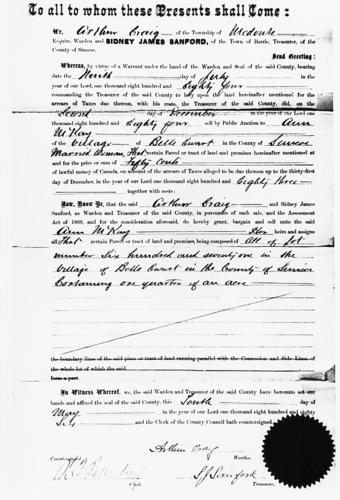 To all to whom these Presents shall Come:
We, Arthur Craig of the Township of Medonte
Esquire, Warden and SIDNEY JAMES SANFORD, of the Town of Barrie, Treasurer, of the
County of Simcoe.
Send Greeting:
Whereas, by virtue of a Warrant under the hand of the Warden and Seal of said County, bearing
date the Ninth day of July in the
year of our Lord one thousand eight hundred and Eighty four
commanding the Treasurer of the said County to levy upon the land hereinafter mentioned for the
arrears of Taxes due thereon, with his costs, the Treasurer of the said County, did, on the
Second day of December in the year of our Lord one
thousand eight hundred and Eighty four sell by Public Auction to Ann
McKay
of the Village of Belle Ewart in the County of Simcoe
Married Woman, That certain Parcel or tract of land and premises hereinafter mentioned at
and for the price or sum of Fifty Cents
of lawful money of Canada, on account of the arrears of Taxes alleged to be due thereon up to the thirty-first
day of December, in the year of our Lord one thousand eight hundred and Eighty three
together with costs:
Now, Know Ye, that we, the said Arthur Craig and Sidney James
Sanford, as Warden and Treasurer of the said County, in pursuance of such sale, and the Assessment
Act of 1869, and for the consideration aforesaid, do hereby grant, bargain and sell unto the said
Ann McKay Her heirs and assigns
All That certain Parcel or tract of land and premises, being composed of All of Lot
number Six hundred and seventy one in the
Village of Belle Ewart in the County of Simcoe
Containing one quarter of an acre
the boundary lines of the said piece or tract of land running parallel with the Concession and Side Lines of
the whole lot of which the said
form a part.
In Witness Whereof, we, the said Warden and Treasurer of the said County have hereunto set our
hands and affixed the seal of the said County, this Tenth day of
May in the year of our Lord one thousand eight hundred and eighty
Six and the Clerk of the County Council hath countersigned.
Arthur Craig
Countersigned Warden.
S J Sanford
Clerk. Treasurer.